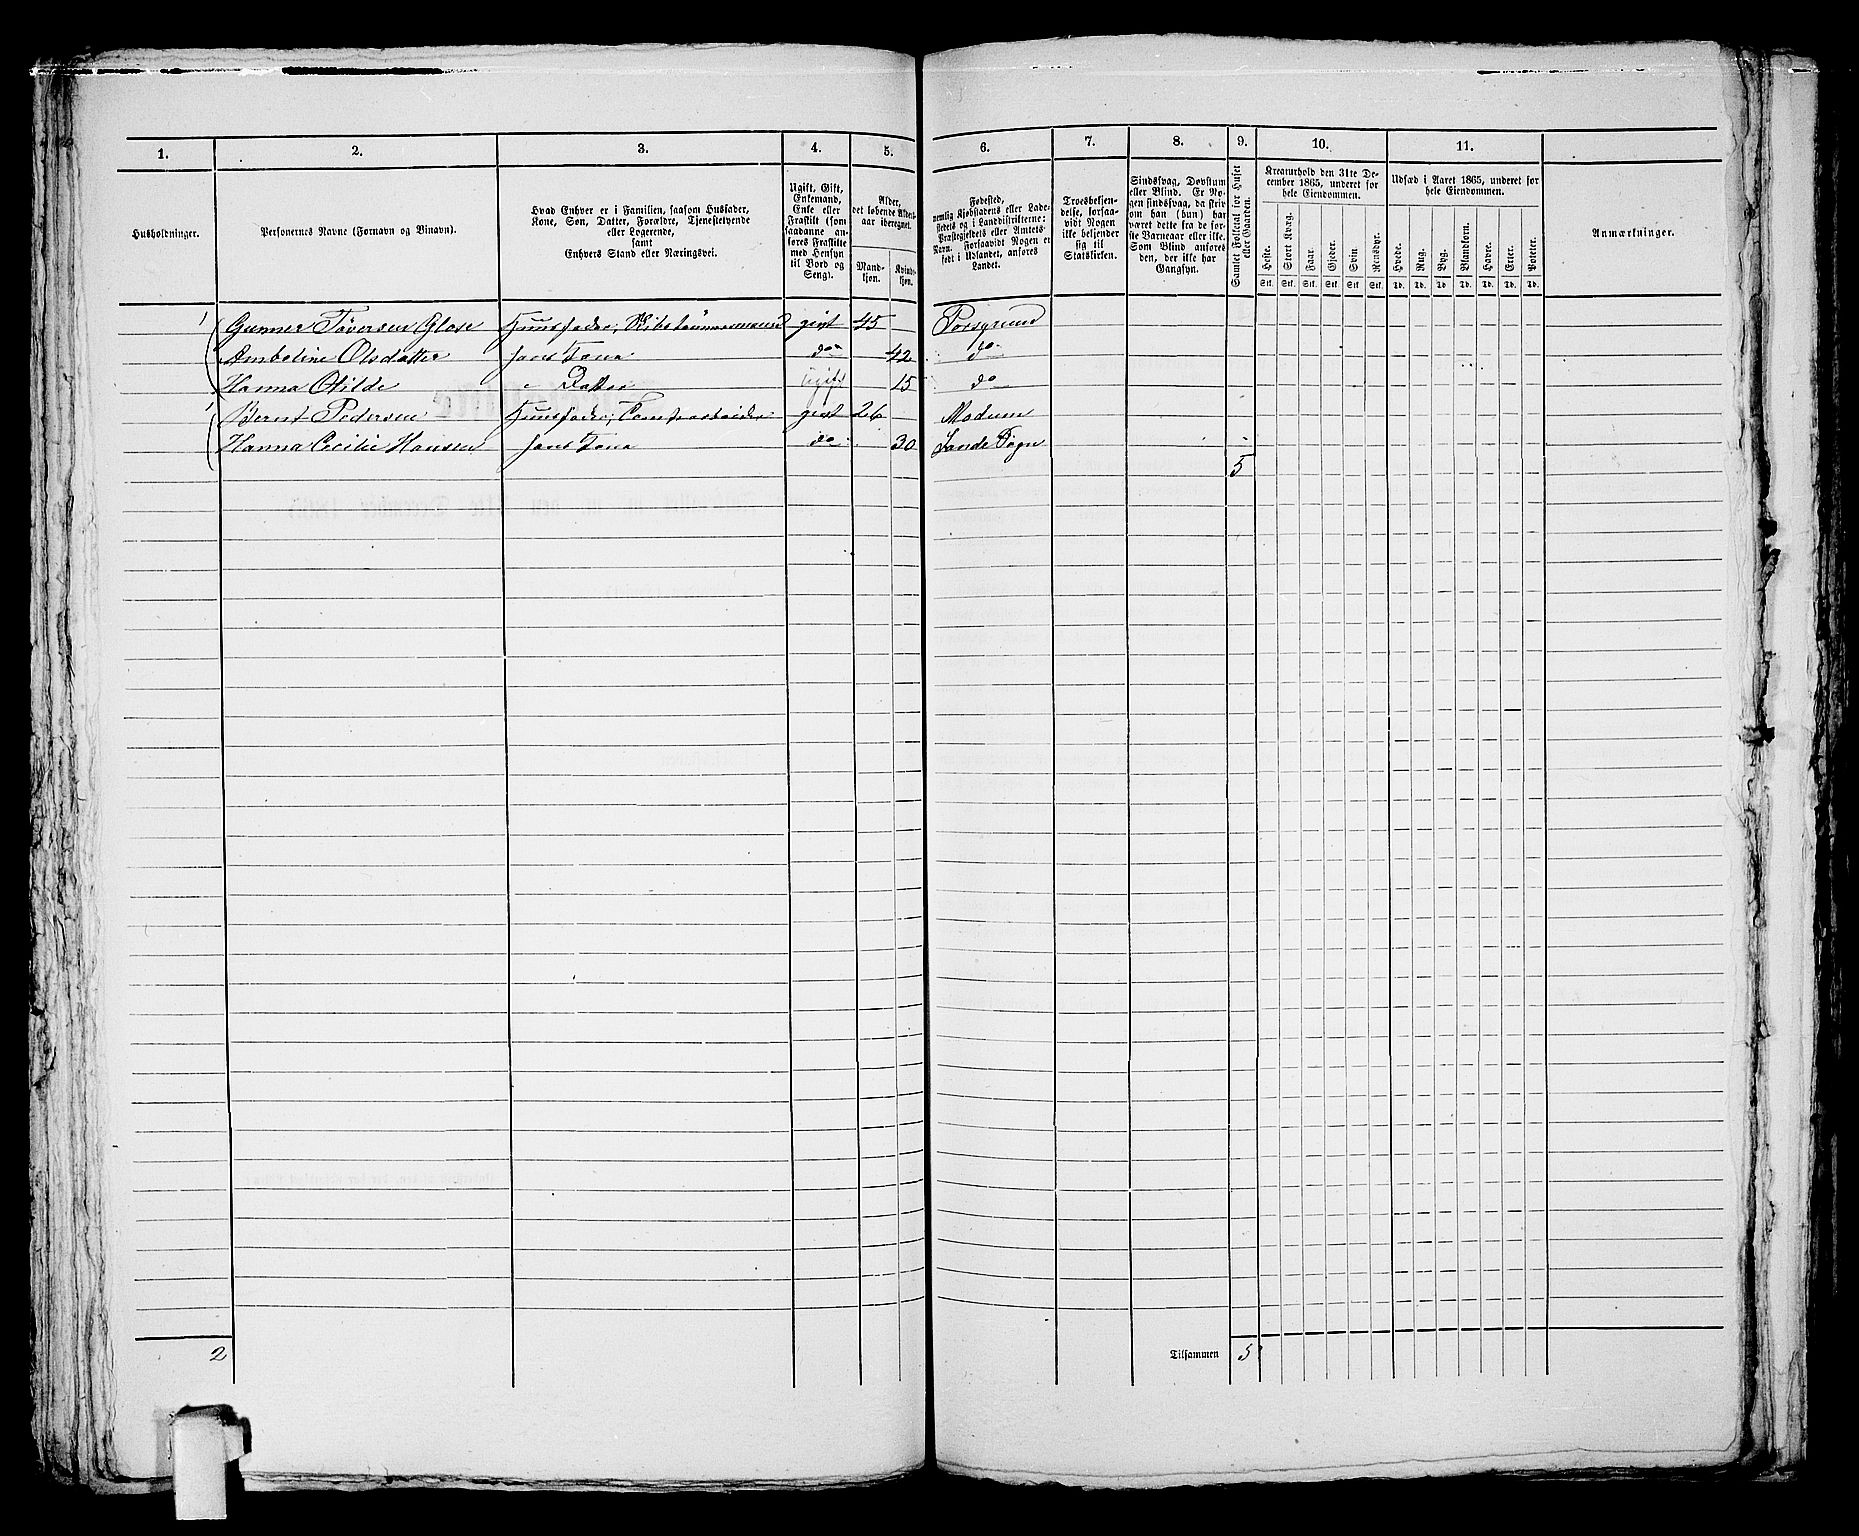 1. 2. 3. 4. 5. 6. 7. 8. 9. 10. 11.
Husholdninger.
Personernes Navne (Fornavn og Binavn).
Hvad Enhver er i Familien, saasom Husfader,
Kone, Søn, Datter, Forældre, Tjenestetyende
eller Logerende,
samt
Enhvers Stand eller Næringsvei.
Ugift, Gift,
Enkemand,
Enke eller
Fraskilt (som
saadanne an-
føres Fraskilte
med Hensyn
til Bord og
Seng).
Alder,
det løbende Alders-
aar iberegnet.
Mand-
kjøn.
Kvind-
kjøn.
Fødested,
nemlig Kjøbstadens eller Lade-
stedets og i Landdistrikterne:
Præstegjeldets eller Amtets
Navn. Forsaavidt Nogen er
født i Udlandet, anføres
Landet.
Troesbekjen-
delse, forsaa-
vidt Nogen
ikke bekjender
sig til
Statskirken.
Sindssvag, Døvstum
eller Blind. Er No-
gen sindssvag, da skriv
om han (hun) har
været dette fra de før-
ste Barneaar eller ikke.
Som Blind anføres
den, der ikke har
Gangsyn.
Samlet Folketal for Huset
eller Gaarden.
Kreaturhold den 31te De-
cember 1865, underet for
hele Eiendommen.
Heste. Stort Kvæg. Faar. Gjeder. Svin. Rensdyr.
Stk. Stk. Stk. Stk. Stk. Stk.
Udsæd i Aaret 1865, underet for
hele Eiendommen.
Hvede. Rug. Byg. Blandkorn. Havre. Erter. Poteter.
Td. Td. Td. Td. Td. Td. Td.
Anmærkninger.
1 Gunner Tøversen Glose Huusfader; Skibstømmermand gift 45 Porsgrund
Amboline Olsdatter hans Kona do 42 do
Hanna Otilde " Datter ugift 15 do
1 Bernt Pedersen Huusfader; Tomtearbeider gift 26 Modum
Hanna Cecilie Hansen hans Kona do 30 Sande Sogn
5
2 Tilsammen 5